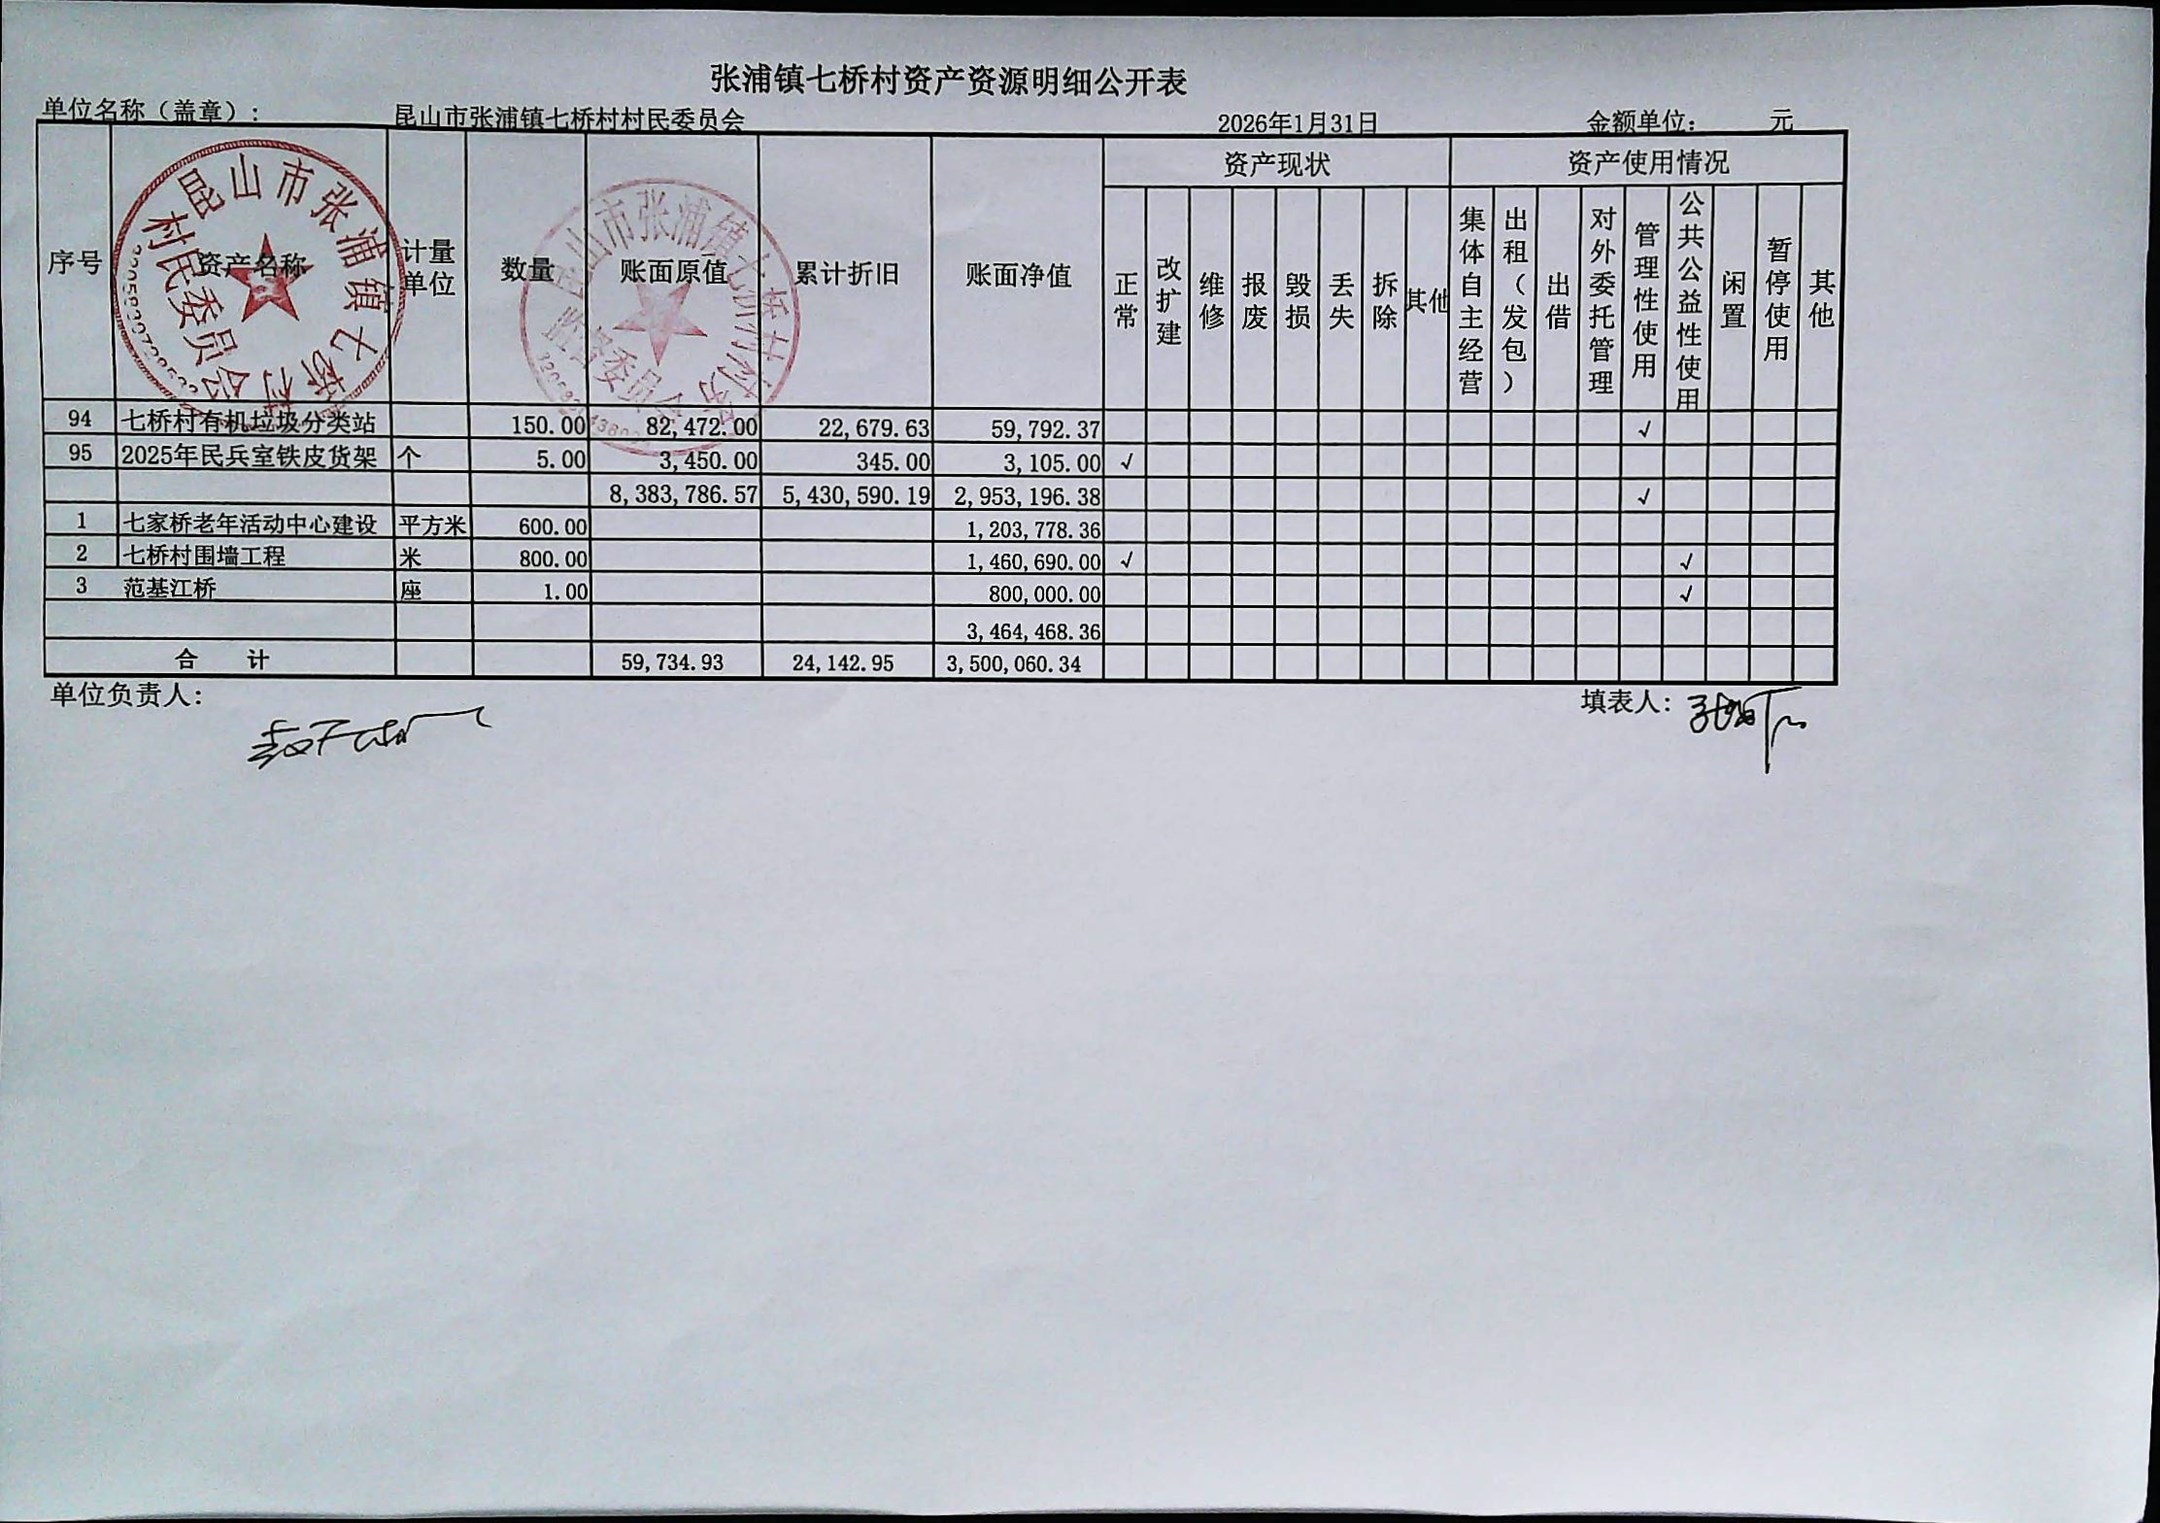 张浦镇七桥村资产资源明细公开表
单位名称（盖章）： 昆山市张浦镇七桥村村民委员会 2026年1月31日 金额单位： 元
序号 资产名称 计量单位 数量 账面原值 累计折旧 账面净值 资产现状 资产使用情况
正常 改扩建 维修 报废 毁损 丢失 拆除 其他 集体自主经营 出租（发包） 出借 对外委托管理 管理性使用 公共公益性使用 闲置 暂停使用 其他
94 七桥村有机垃圾分类站 150.00 82,472.00 22,679.63 59,792.37 √
95 2025年民兵室铁皮货架 个 5.00 3,450.00 345.00 3,105.00 √
8,383,786.57 5,430,590.19 2,953,196.38 √
1 七家桥老年活动中心建设 平方米 600.00 1,203,778.36
2 七桥村围墙工程 米 800.00 1,460,690.00 √ √
3 范基江桥 座 1.00 800,000.00 √
3,464,468.36
合 计 59,734.93 24,142.95 3,500,060.34
单位负责人： 填表人：
昆山市张浦镇七桥村
村民委员会
昆山市张浦镇七桥村村务
监督委员会